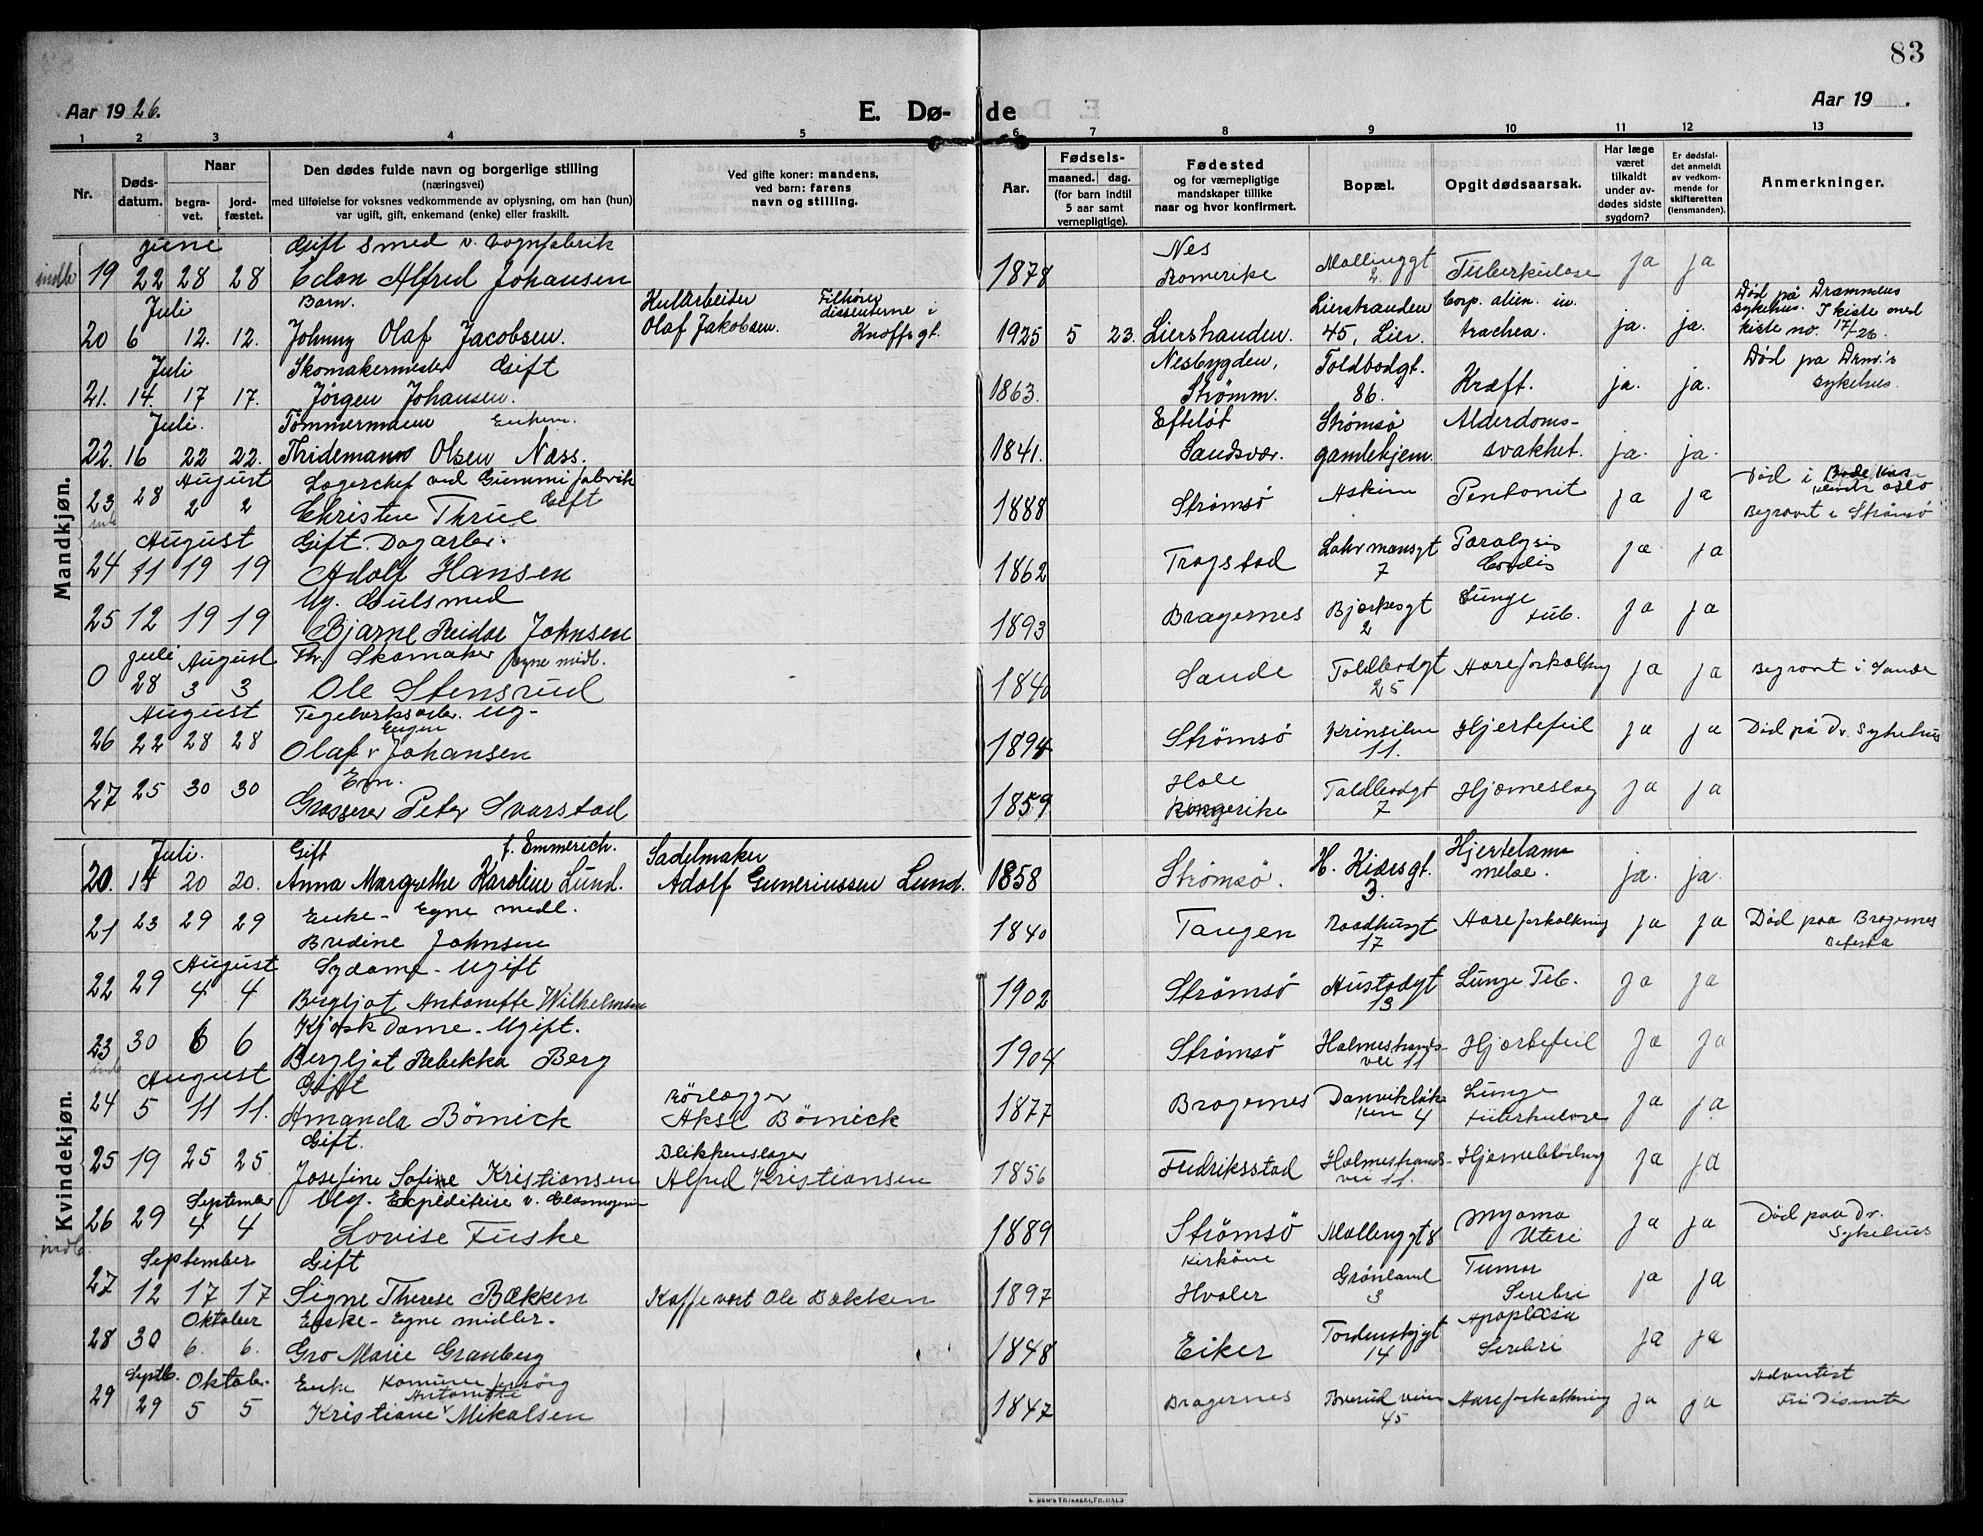 83
Aar 1926.
E. Dø-
de
Aar 19 .
1 2 3 4 5 6 7 8 9 10 11 12 13
Nr.
Døds-
datum.
Naar
begra-
vet.
jord-
fæstet.
Den dødes fulde navn og borgerlige stilling
(næringsvei)
med tilføielse for voksnes vedkommende av oplysning, om han (hun)
var ugift, gift, enkemand (enke) eller fraskilt.
Ved gifte koner: mandens,
ved barn: farens
navn og stilling.
Aar.
Fødsels-
maaned. dag.
(for barn indtil
5 aar samt
vernepligtige).
Fødested
og for værnepligtige
mandskaper tillike
naar og hvor konfirmert.
Bopæl.
Opgit dødsaarsak.
Har læge
været
tilkaldt
under av-
dødes sidste
sygdom?
Er dødsfal-
det anmeldt
av vedkom-
mende for
skifteretten
(lensmanden).
Anmerkninger.
Mandkjøn.
Gift Smed v. Vognfabrik Nes
indb 19 22 28 28 Edon Alfred Johansen 1878 Romerike Mollenggt 2 Tuberkulose ja ja
Juli Barn. Tilhører dissenterne i Knoffsgt. Lierstranden Corp. alien. in. Død på Drammens
20 6 12. 12. Johnny Olaf Jacobsen. Olaf Jakobsen. 1925 5 23. Lierstranden. 45, Lier. trachea. ja. ja. sykehus. I kiste med kiste no. 17/-26.
Juli Skomakermester Gift Nesbygden, Toldbodgt. Død pa Drm.'s
21. 14. 17 17. Jørgen Johansen. 1863. Strømm. 86. Kræft. ja. ja. sykehus.
Juli. Tømmermann Enkem. Efteløt Strømsø Alderdoms-
22. 16 22 22. Thidemann Olsen Næss. 1841. Sandsvær. gamlehjem. svakhet. ja. ja.
August Lagerchef ved Gummifabrik Gift
23 28 2 2 Christen Thrue 1888 Strømsø Askim ja ja Død i Oslo
Begravet i Strømsø
August Gift. Dagarb.
24 11 19 19 Adolf Hansen 1862 Trøgstad 7 Paralysis Cordis ja ja
Ug. Gulsmed
25 12 19 19 Bjarne Reidar Johnsen 1893 Bragernes Bjerkesgt 2 Lunge tub. ja ja
Juli August Skomaker egne midl.
0 28 3 3 Ole Stensrud 1840 Sande Toldbodgt 25 Aareforkalkning ja ja Begravet i Sande
August Ug- Eugen
26 22 28 28 Olaf v Johansen 1894 Strømsø 11. Hjertefeil ja ja Død på Dr. Sykehus
Em. Hole
27 25 30 30 Grosserer Peter Svarstad 1859 Ringerike Toldbodgt 7 Hjerneslag ja ja
Kvindekjøn.
Juli. Gift f. Emmerich. Sadelmaker Hjertelam-
20. 14 20 20. Anna Margrethe Karoline Lund. Adolf Gunerinssen Lund. 1858 Strømsø. H. Kiærsgt. 3. melse. ja. ja.
Enke- Egne midl.
21 23 29 29 Bredine Johnsen 1840 Tangen Raadhusgt 17 Aareforkalkning ja ja Død paa Bragernes
August Sydame- Ugift
22 29 4 4 Bergljot Antonette Wilhelmsen 1902 Strømsø Austadgt 13 Lunge Tub. ja ja
Kjosk Dame- Ugift.
23 30 6 6 Bergljot Rebekka Berg 1904 Strømsø Holmestrands- vei 11 Hjertefeil ja ja
August Gift Rørlægger
24 5 11 11. Amanda Børnick Aksl Børnick 1877 Bragernes 4 Lunge tuberkulose ja ja
Gift. Blikkenslager
25 19 25 25 Josefine Sofine Kristiansen Alfred Kristiansen 1856 Fredriksstad Holmestrands- vei 11. Hjerneblødning ja ja
September Ug. Expeditrise v. Glasmagasin
26 29 4 4 Lovise Fuske 1889 Strømsø Mollenggt 8 Myoma Uteri ja ja Død paa Dr. Sykehus
indb.
September Gift Kirkøene
27 12 17 17 Signe Therese Bækken Kaffevert Ole Bækken 1897 Hvaler Grønland 3 Tumor Serebri ja ja
Oktober Enke- Egne midler.
28 30 6. 6. Gro Marie Granberg 1848 Eiker Tordenskjgt 14 Apoplexia Serebri ja ja
Septb. Oktober Enke Komune forsørg Antonette Adventist
29 29 5 5 Kristiane v Mikalsen 1847 Bragernes 45 Aareforkalkning ja ja Fri Disenter